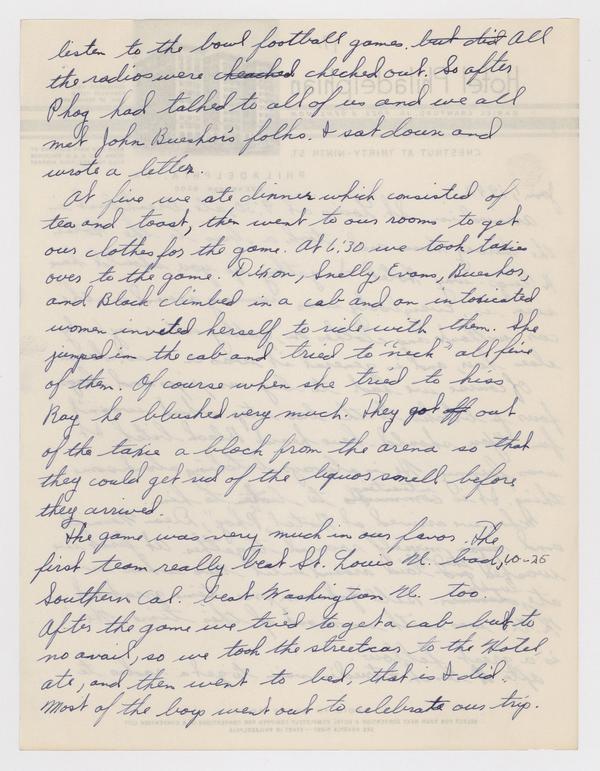 listen to the bowl football games. but did All
the radios were cheached checked out. So after
Phog had talked to all of us and we all
met John Bueshor's folks. I sat down and
wrote a letter.
At five we ate dinner which consisted of
tea and toast, then went to our rooms to get
our clothes for the game. At 6:30 we took taxies
over to the game. Dixon, Snelly, Evans, Bueshor,
and Black climbed in a cab and an intoxicated
women invited herself to ride with them. She
jumped in the cab and tried to "neck" all five
of them. Of course when she tried to kiss
Ray he blushed very much. They got off out
of the taxie a block from the arena so that
they could get rid of the liquor smell before
they arrived.
The game was very much in our favor. The
first team really beat St. Louis U. bad,
Southern Cal. beat Washington U. too.
After the game we tried to get a cab but to
no avail, so we took the streetcar to the Hotel
ate, and then went to bed, that is I did.
Most of the boys went out to celebrate our trip.
Hotel Philadelphian
CHESTNUT AT THIRTY-NINTH ST.
PHILADELPHIA